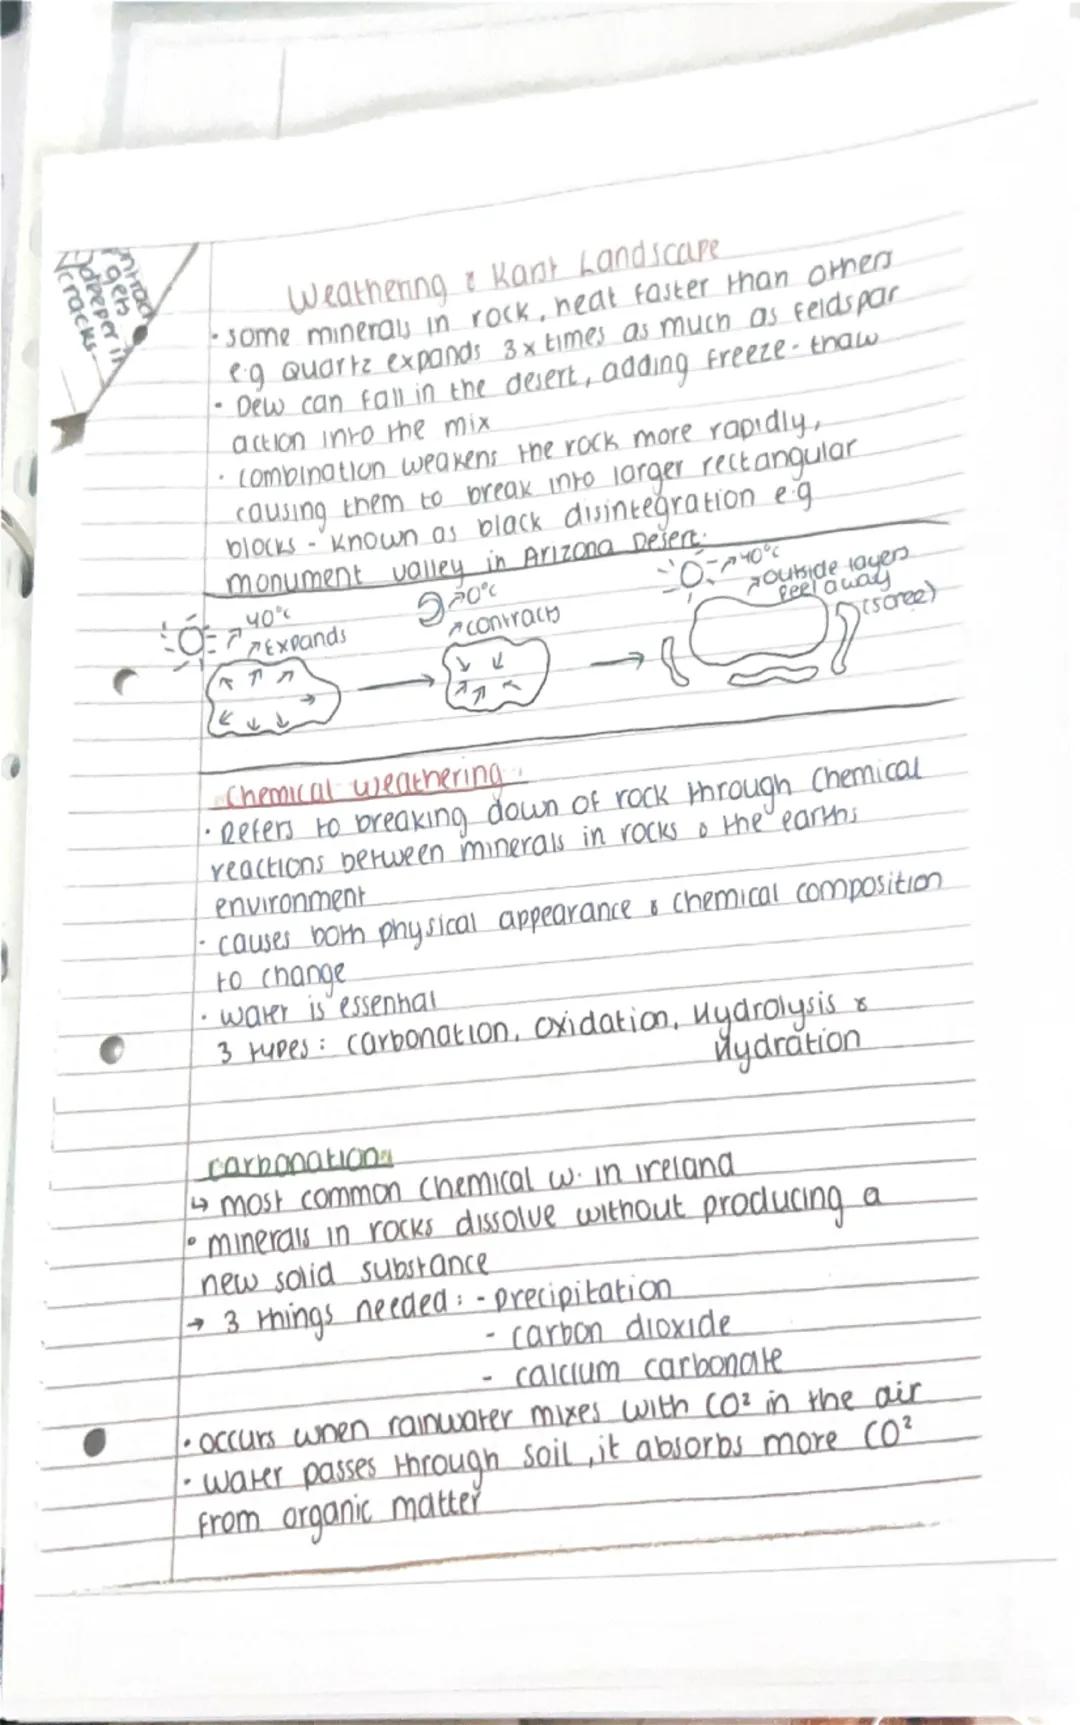 Weathering & Karst Landscape
· some minerals in rock, heat faster than others
e.g Quartz expands 3x times as much as feldspar
· Dew can fall in the desert, adding freeze-thaw
action into the mix
· combination weakens the rock more rapidly,
causing them to break into larger rectangular
blocks - known as block disintegration e.g
monument valley in Arizona Desert.
gets
deeper in
cracks
40°c
expands
0°c
contracts
40°c
outside layers
peel away
(scree)
Chemical weathering
· Refers to breaking down of rock through chemical
reactions between minerals in rocks & the earths
environment
· causes both physical appearance & chemical composition
to change
· water is essential
3 types: carbonation, oxidation, Hydrolysis &
Hydration
carbonation
↳ most common chemical w. in ireland
• minerals in rocks dissolve without producing a
new solid substance
→ 3 things needed: - precipitation
- carbon dioxide
- calcium carbonate
· occurs when rainwater mixes with CO² in the air
· water passes through soil, it absorbs more CO²
from organic matter